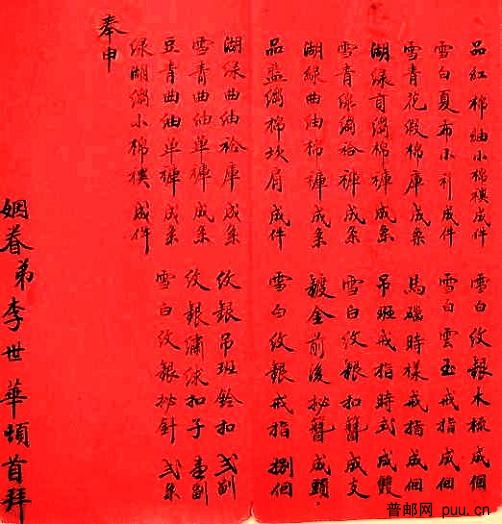 品红棉紬小棉襖成件
雪白紋銀木梳成個
雪白夏布小衫成件
雪白雲玉戒指成個
雪青花緞棉庫成条
馬磂時樣戒指成個
湖绿貢縐棉褲成条
吊班戒指時式成雙
雪青綿縐裕褲成条
雪白紋銀扣簪成支
湖綠曲油棉褲成条
鍍金前後抄簪成頭
品監縐棉坎肩成件
雪白紋銀戒指捌個
湖绿曲油裕庫成条
紋銀吊班鈴扣弍副
雪青曲油单褲成条
紋銀繡绒扣子壹副
豆青曲油单褲成条
雪白紋銀抄針弍条
绿湖縐小棉襖成件
奉申
姻眷弟李世華頓首拜
普邮网 puu.cn